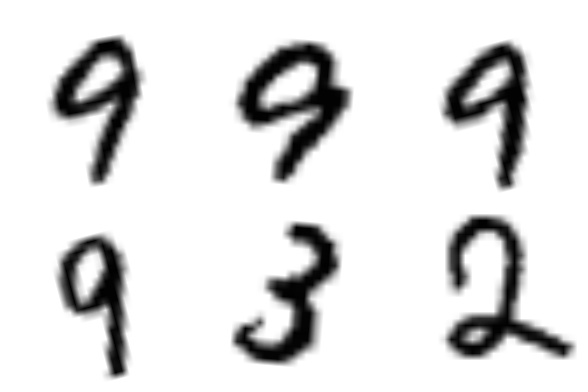 9 9 9
9 3 2